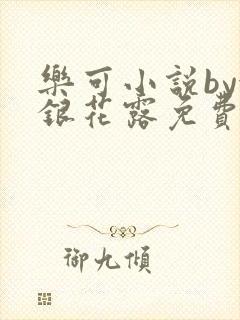 樂可小說by
銀花露免費
御九傾